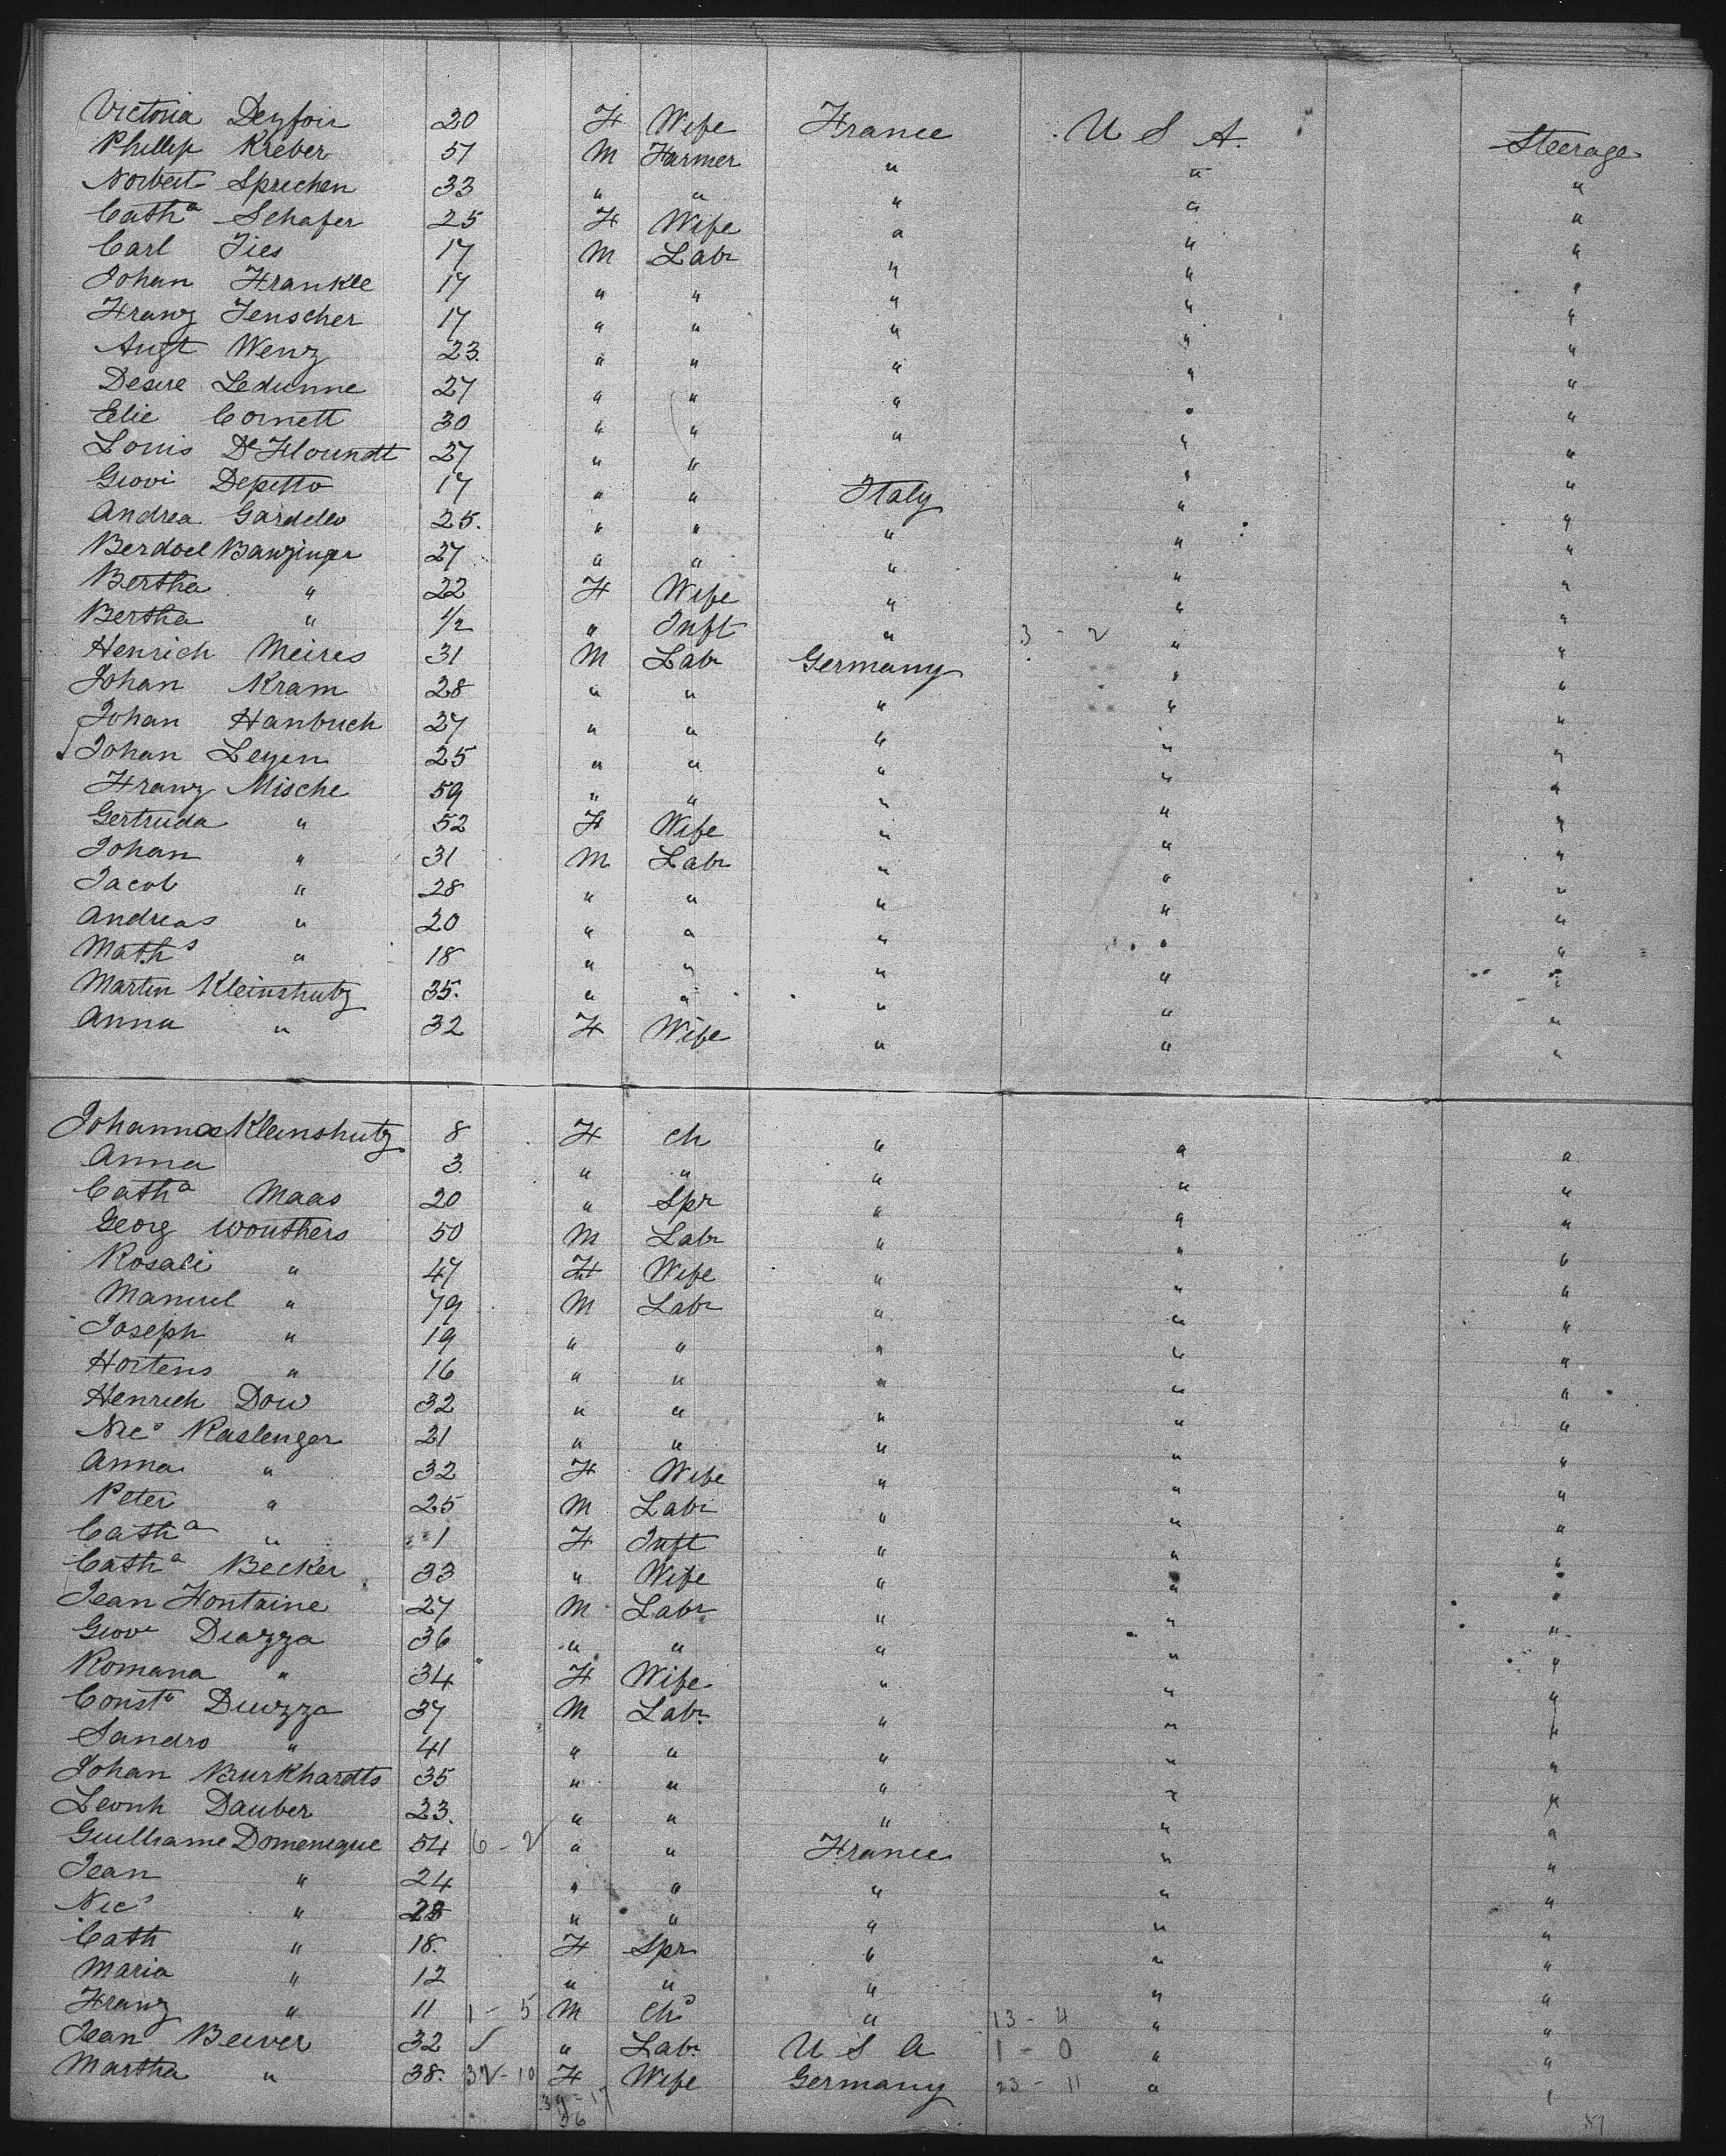 Victoria Dezfoir 20 F Wife France U S A. Steerage
Phillip Kreber 51 M Farmer " " "
Norbert Sprichen 33 " " " " "
Cath<sup>a</sup> Schafer 25 F Wife " " "
Carl Ties 17 M Labr " " "
Johan Frankle 17 " " " " "
Franz Jenscher 17 " " " " "
Augt Wenz 23. " " " " "
Desire Ledunne 27 " " " " "
Elie Cornett 30 " " " " "
Louis De Floundt 27 " " " " "
Giovi Depetto 17 " " Italy " "
Andrea Gardello 25. " " " " "
Berdoel Banzinger 27 " " " " "
Bertha " 22 F Wife " " "
Bertha " 1/2 " Inft " 3 - 2 " "
Henrich Meires 31 M Labr Germany " "
Johan Kram 28 " " " " "
Johan Hanbuch 27 " " " " "
Johan Leyen 25 " " " " "
Franz Mische 59 " " " " "
Gertruda " 52 F Wife " " "
Johan " 31 M Labr " " "
Jacob " 28 " " " " "
Andreas " 20 " " " " "
Maths " 18 " " " " "
Martin Kleinshutz 35. " " " " "
Anna " 32 F Wife " " "
Johanna Kleinshutz 8 F ch " " "
Anna 3. " " " " "
Cath<sup>a</sup> Maas 20 " Spr " " "
Georg Wouthers 50 M Labr " " "
Rosali " 47 F Wife " " "
Manuel " 79 M Labr " " "
Joseph " 19 " " " " "
Hortens " 16 " " " " "
Henrich Dow 32 " " " " "
Nics Raslenger 21 " " " " "
Anna " 32 F Wife " " "
Peter " 25 M Labr " " "
Cath<sup>a</sup> " 1 F Inft " " "
Cath<sup>a</sup> Becker 33 " Wife " " "
Jean Fontaine 27 M Labr " " "
Giov Diazza 36 " " " " "
Romana " 34 F Wife " " "
Const<sup>o</sup> Diuzza 37 M Labr " " "
Sandro " 41 " " " " "
Johan Burkhardts 35 " " " " "
Leonh Dauber 23. " " " " "
Guilliame Domenique 54 6 - 2 " " France " "
Jean " 24 " " " " "
Nics " 28 " " " " "
Cath " 18. F Spr " " "
Maria " 12 " " " " "
Franz " 11 1 - 5 M chs " 13 - 4 " "
Jean Beiver 32 " Labr U S A 1 - 0 " "
Martha " 38. 32 - 10 F Wife Germany 23 - 11 " "
39 - 17
56